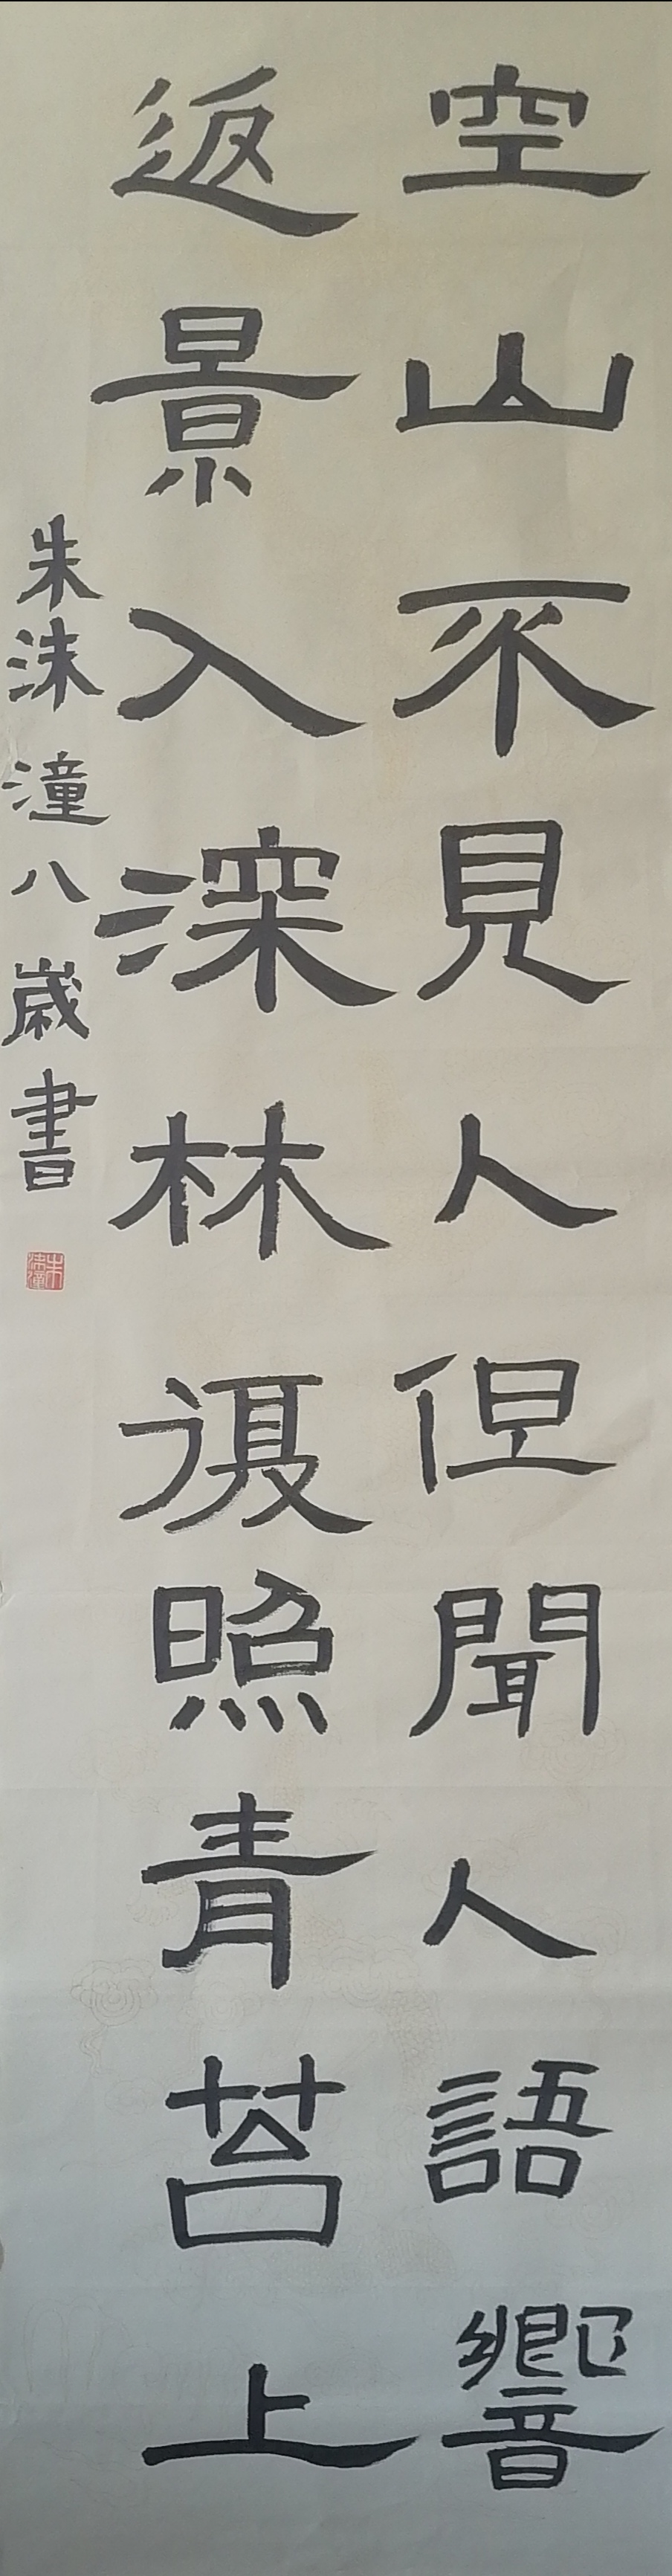 空山不見人但聞人語響
返景入深林復照青苔上
朱沫潼八歲書
朱沫潼